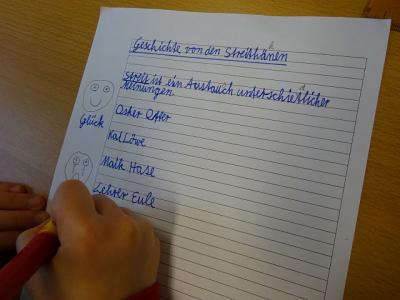 Geschichte von den Streithänen
h
Streit ist ein Austausch unterschietlicher
d
Meinungen.
Glück
Oskar Otter
Kai Löwe
Maik Hase
Lehrer Eule